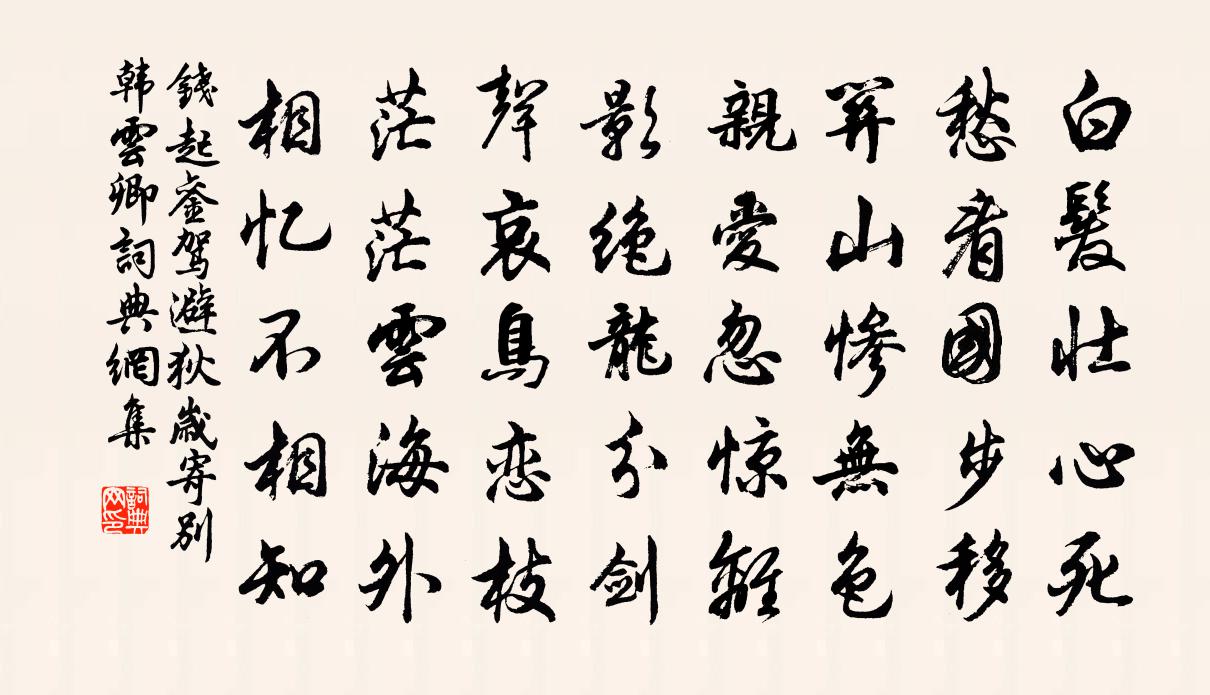 白髮壯心死
愁看國步移
關山慘無色
親愛忽驚離
影绝龍分劍
聲哀鳥恋枝
茫茫雲海外
相忆不相知
錢起銮駕避狄歲寄別
韩雲卿詞典網集
詞典
网印